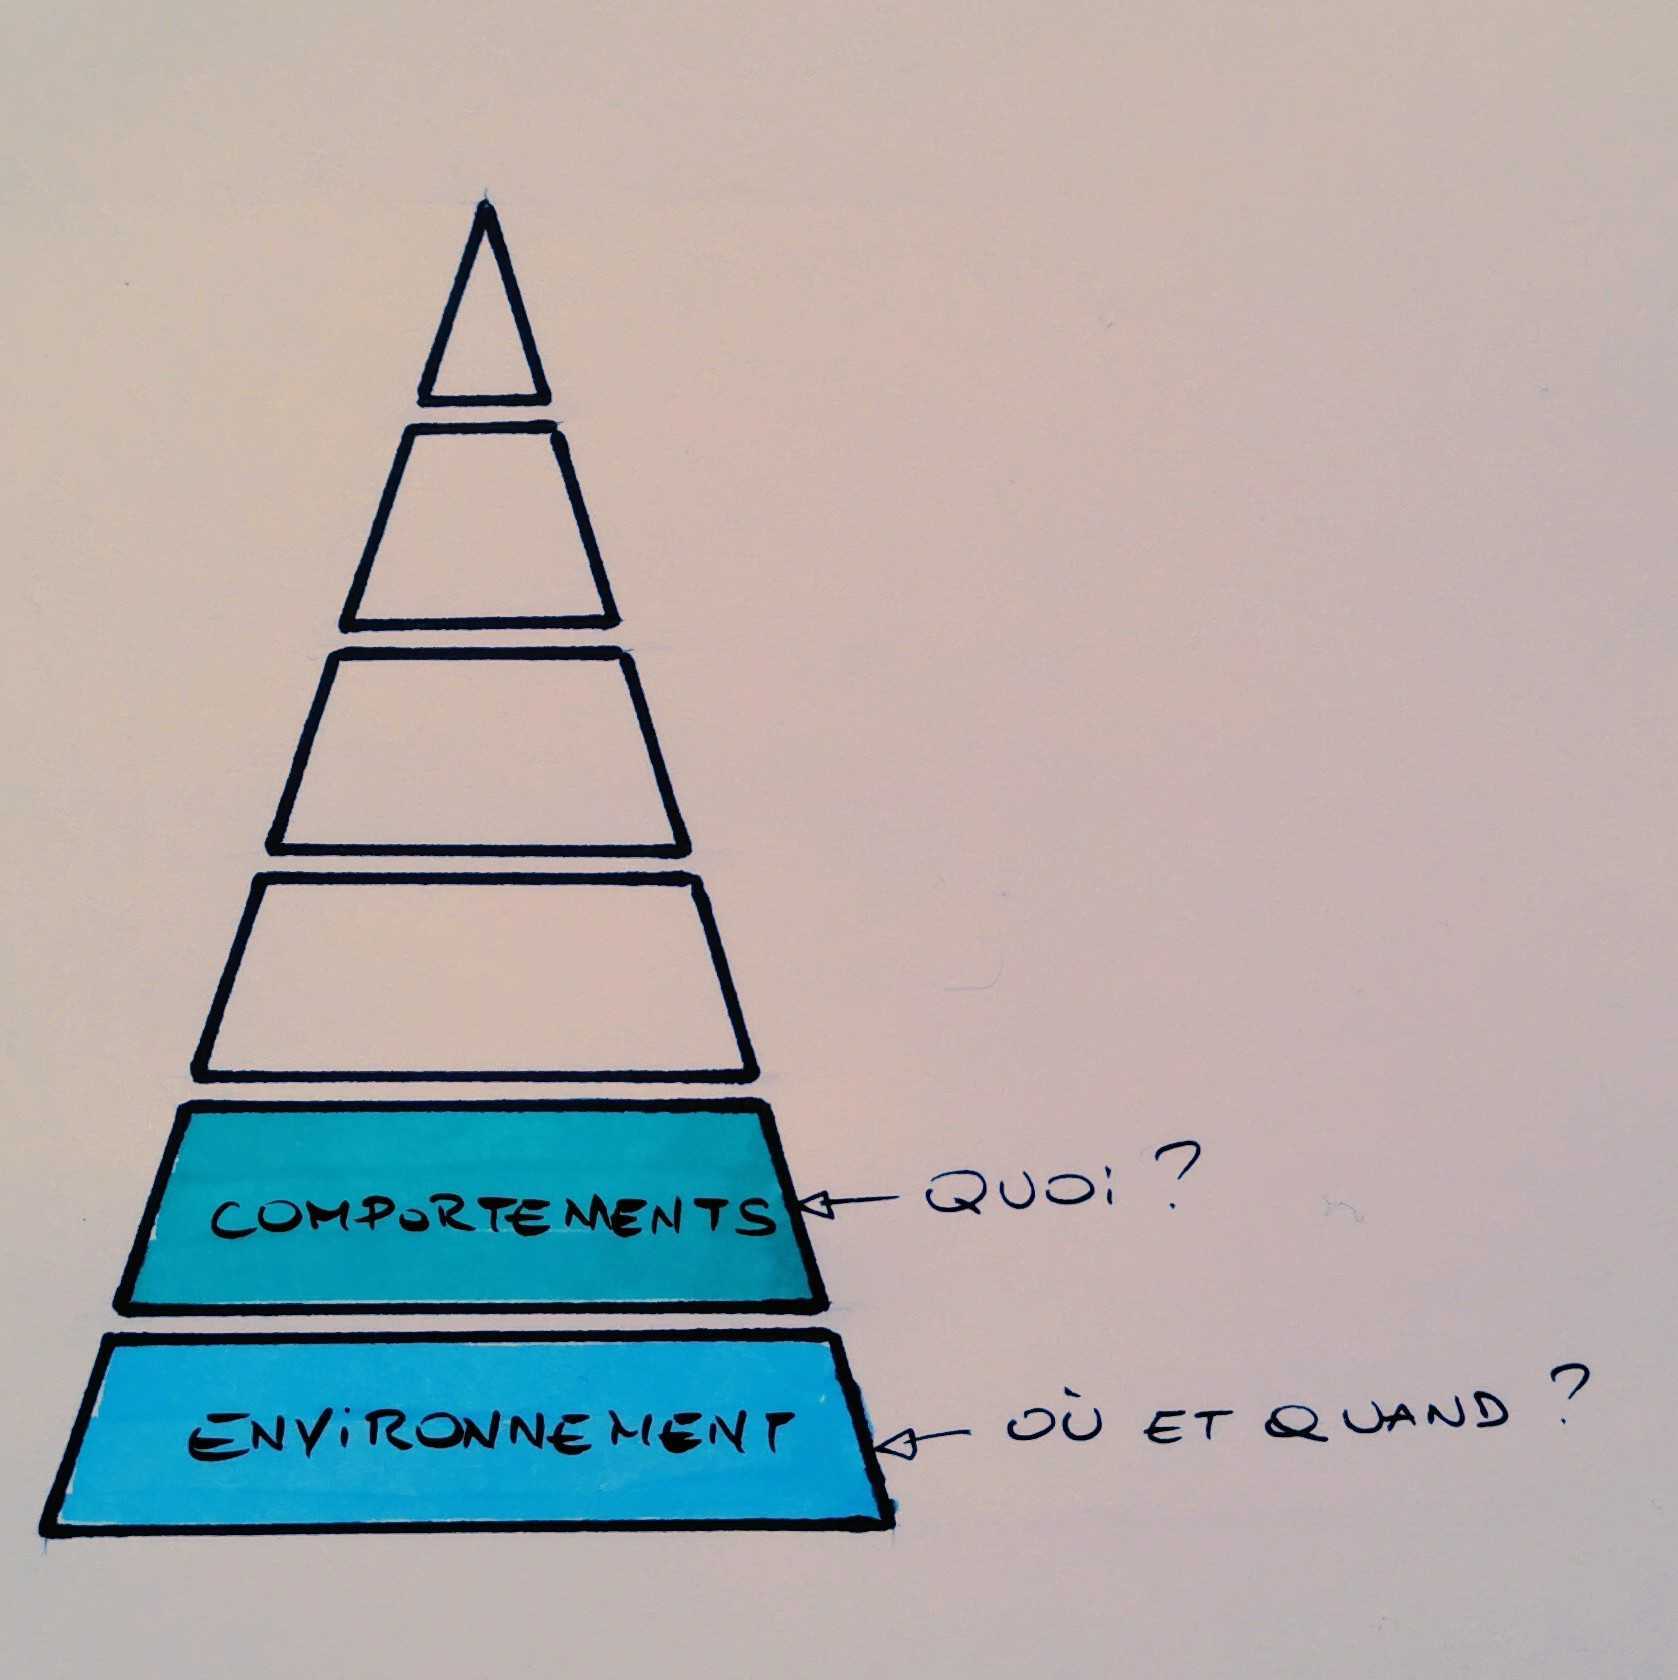 COMPORTEMENTS
QUOi ?
ENViRONNEMENT
OÙ ET QUAND ?